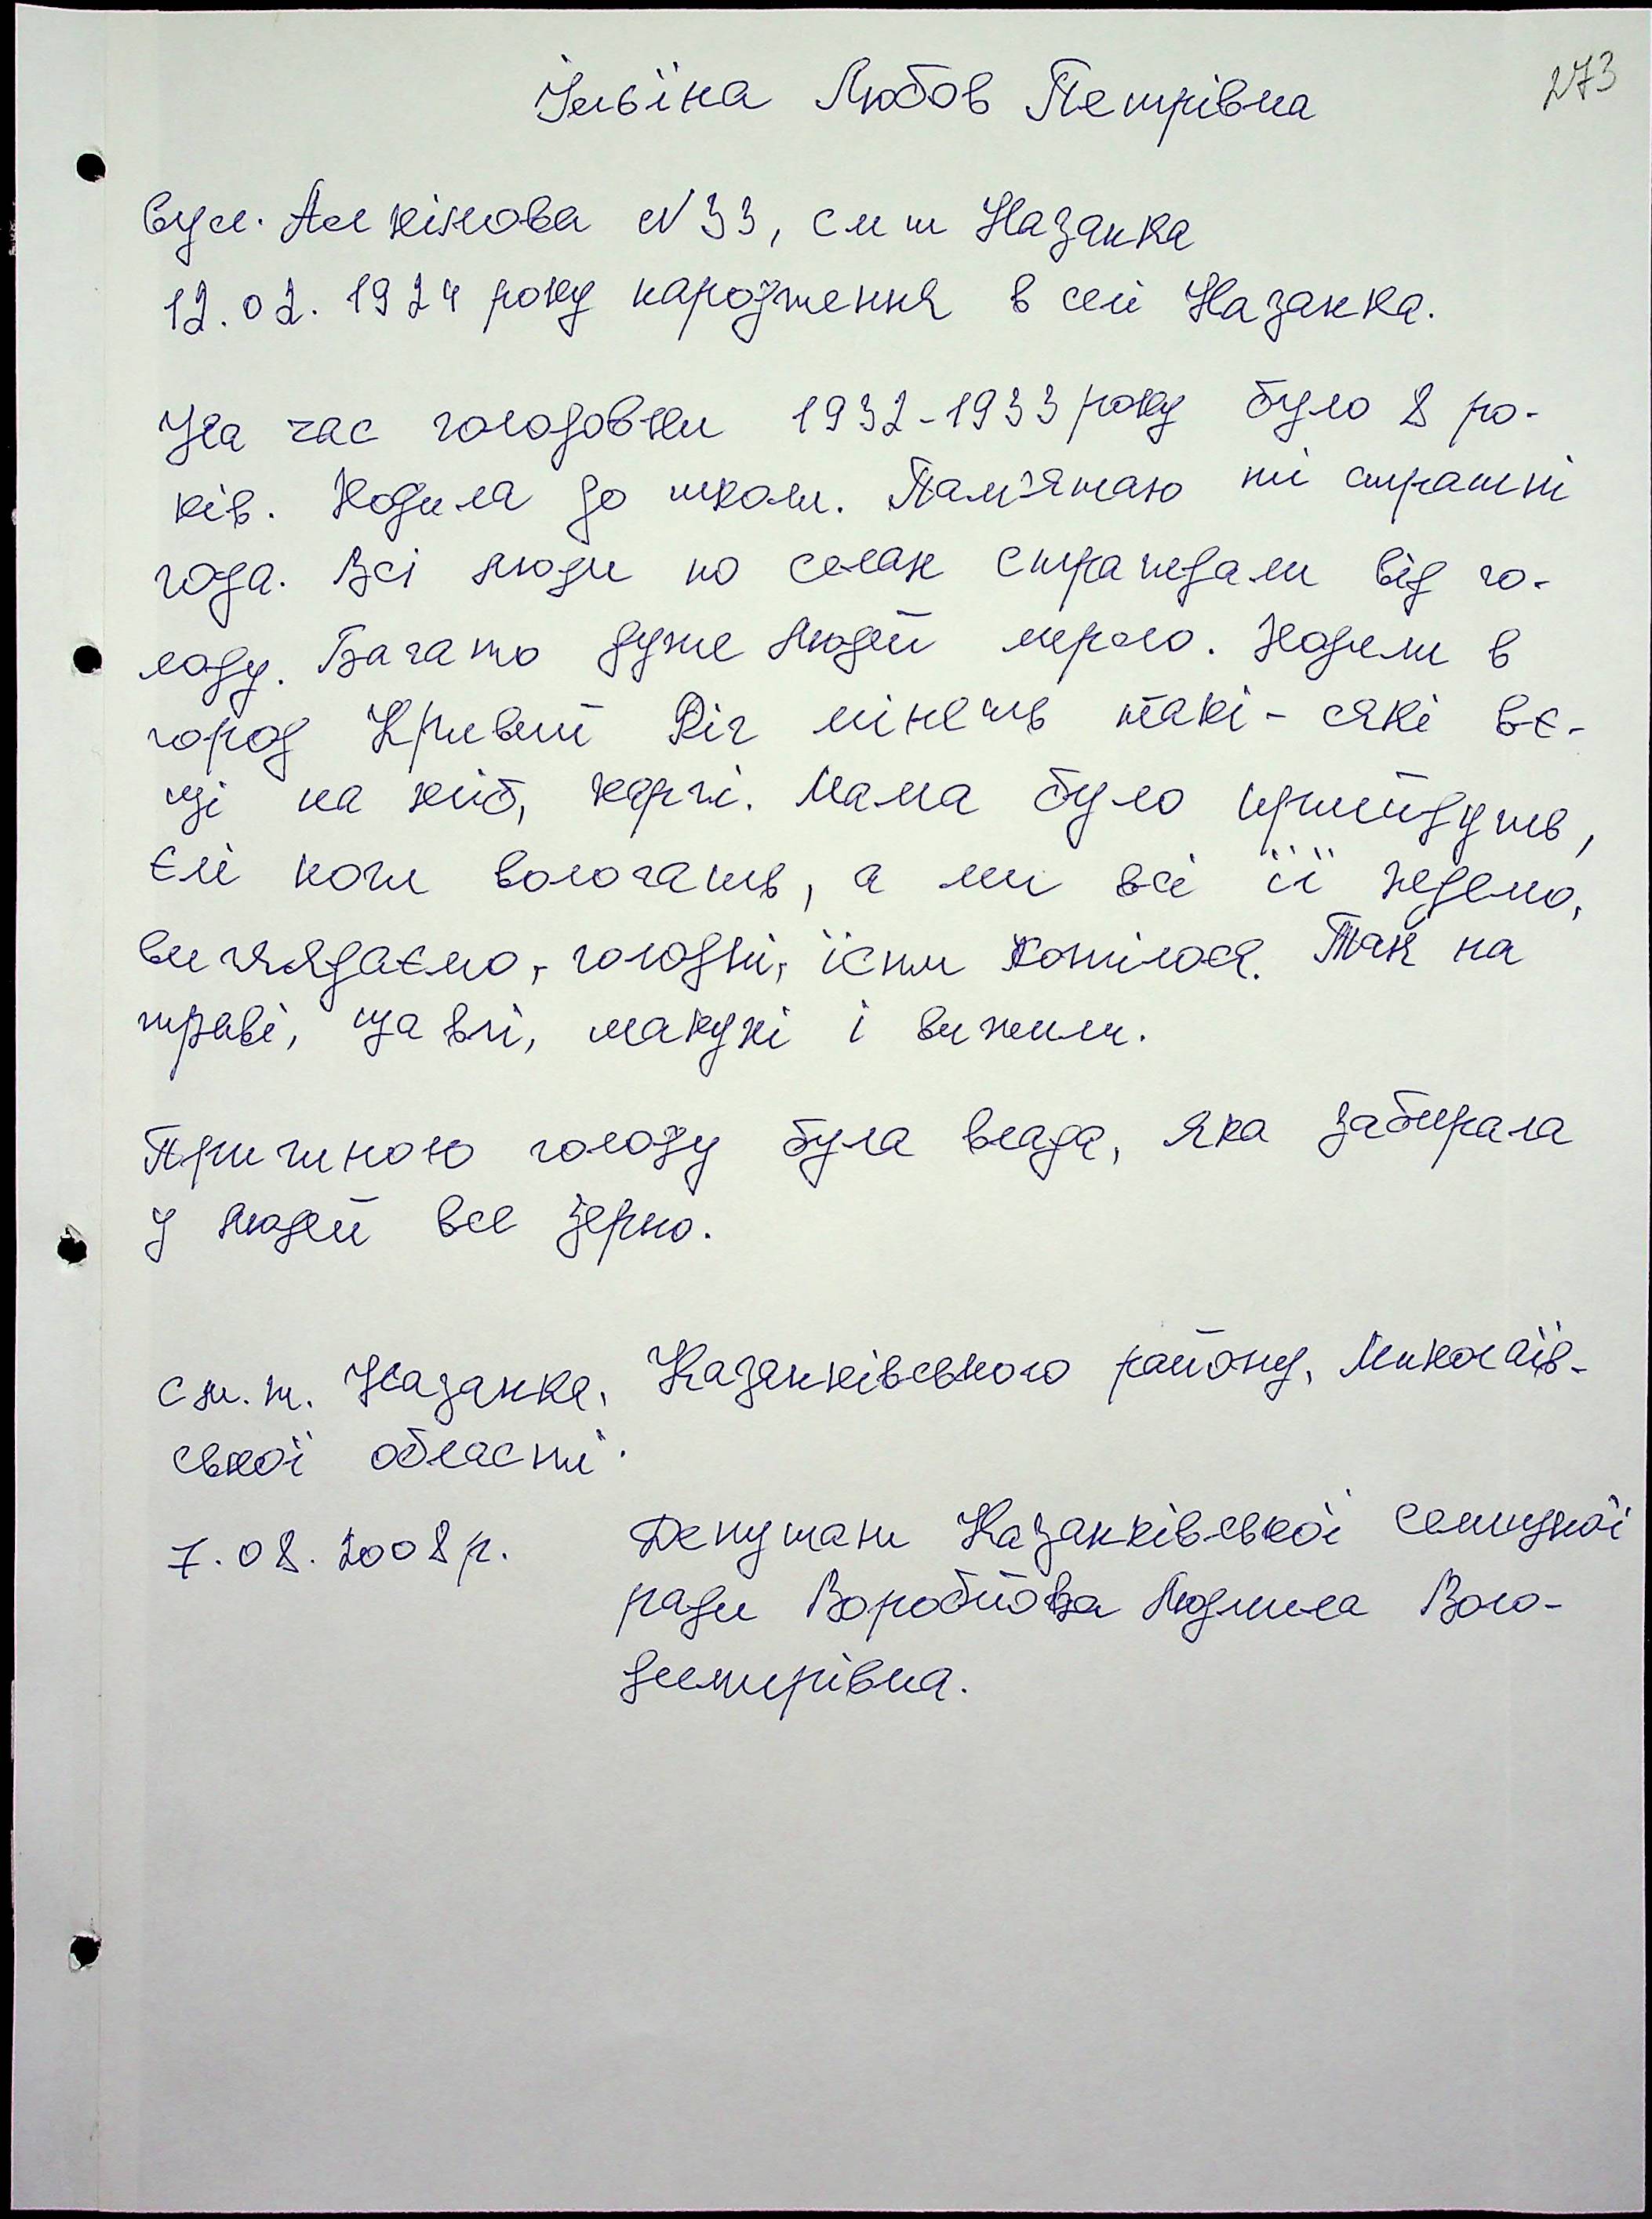 273
Ільїна Любов Петрівна
вул. Алкінова №33, смт Казанка
12.02.1924 року народження в селі Казанка.
На час голодовки 1932-1933 року було 8 ро-
ків. Ходила до школи. Пам'ятаю ті страшні
года. Всі люди по селах страждали від го-
лоду. Багато дуже людей мерло. Ходили в
город Кривий Ріг мінять такі-сякі вє-
щі на хліб, коржі. Мама було прийдуть,
єлі ноги волочать, а ми всі її ждемо,
виглядаємо, голодні, їсти хотілося. Так на
траві, щавлі, макусі і вижили.
Причиною голоду була влада, яка забирала
у людей все зерно.
см.т. Казанка, Казанківського району, Миколаїв-
ської області.
7.08.2008р.
Депутат Казанківської селищної
ради Воробйова Людмила Воло-
димирівна.